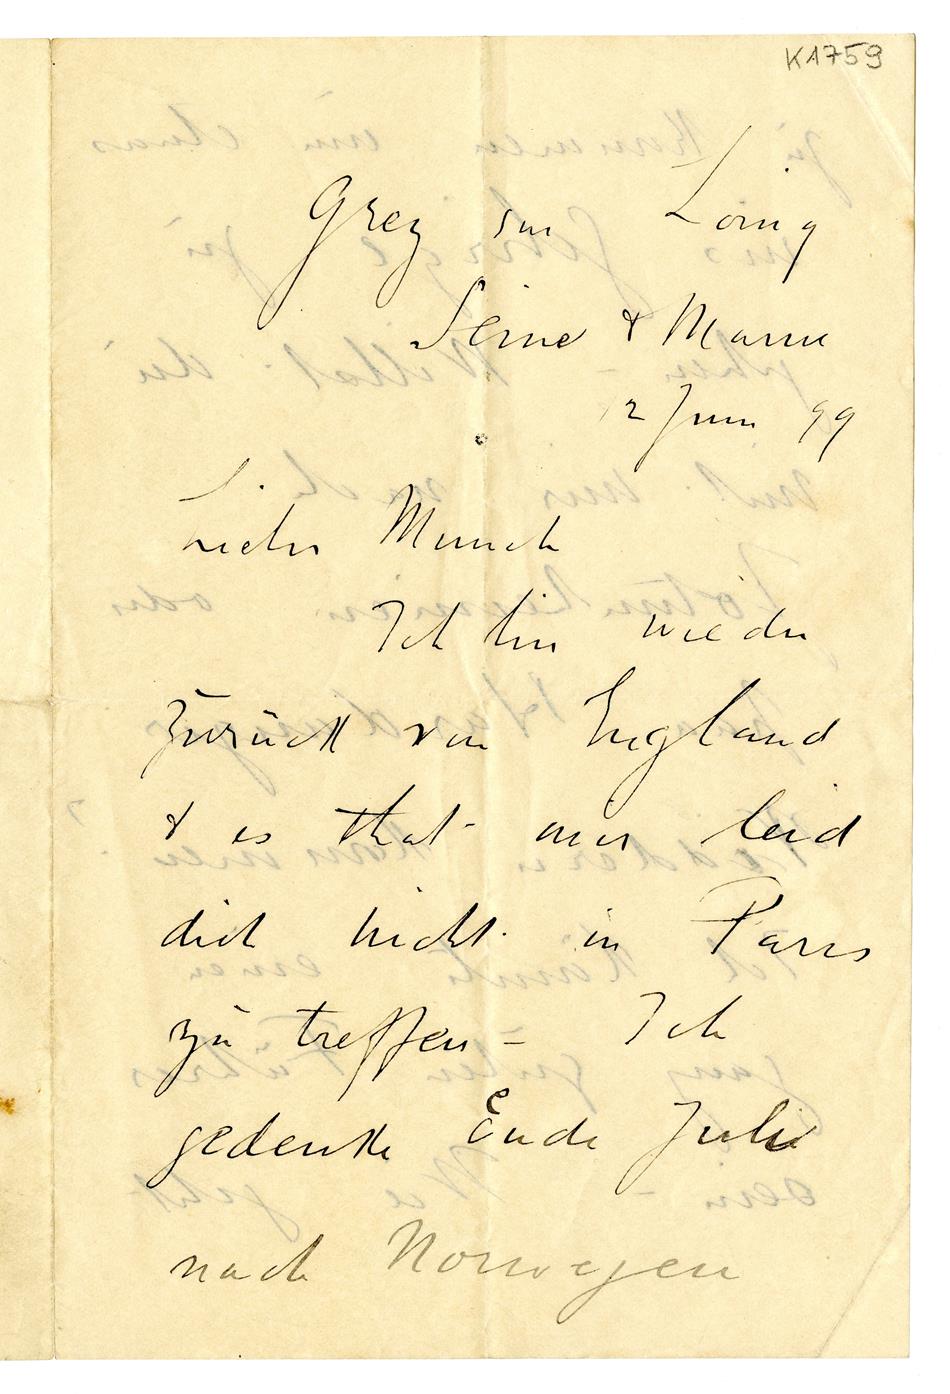 K1759
Grez sur Loing
Seine & Marne
12 Juni 99
Lieber Munch
Ich bin wieder
zurück von England
& es that mir leid
dich nicht in Paris
zu treffen – Ich
gedenke Ende Juli
nach Norwegen